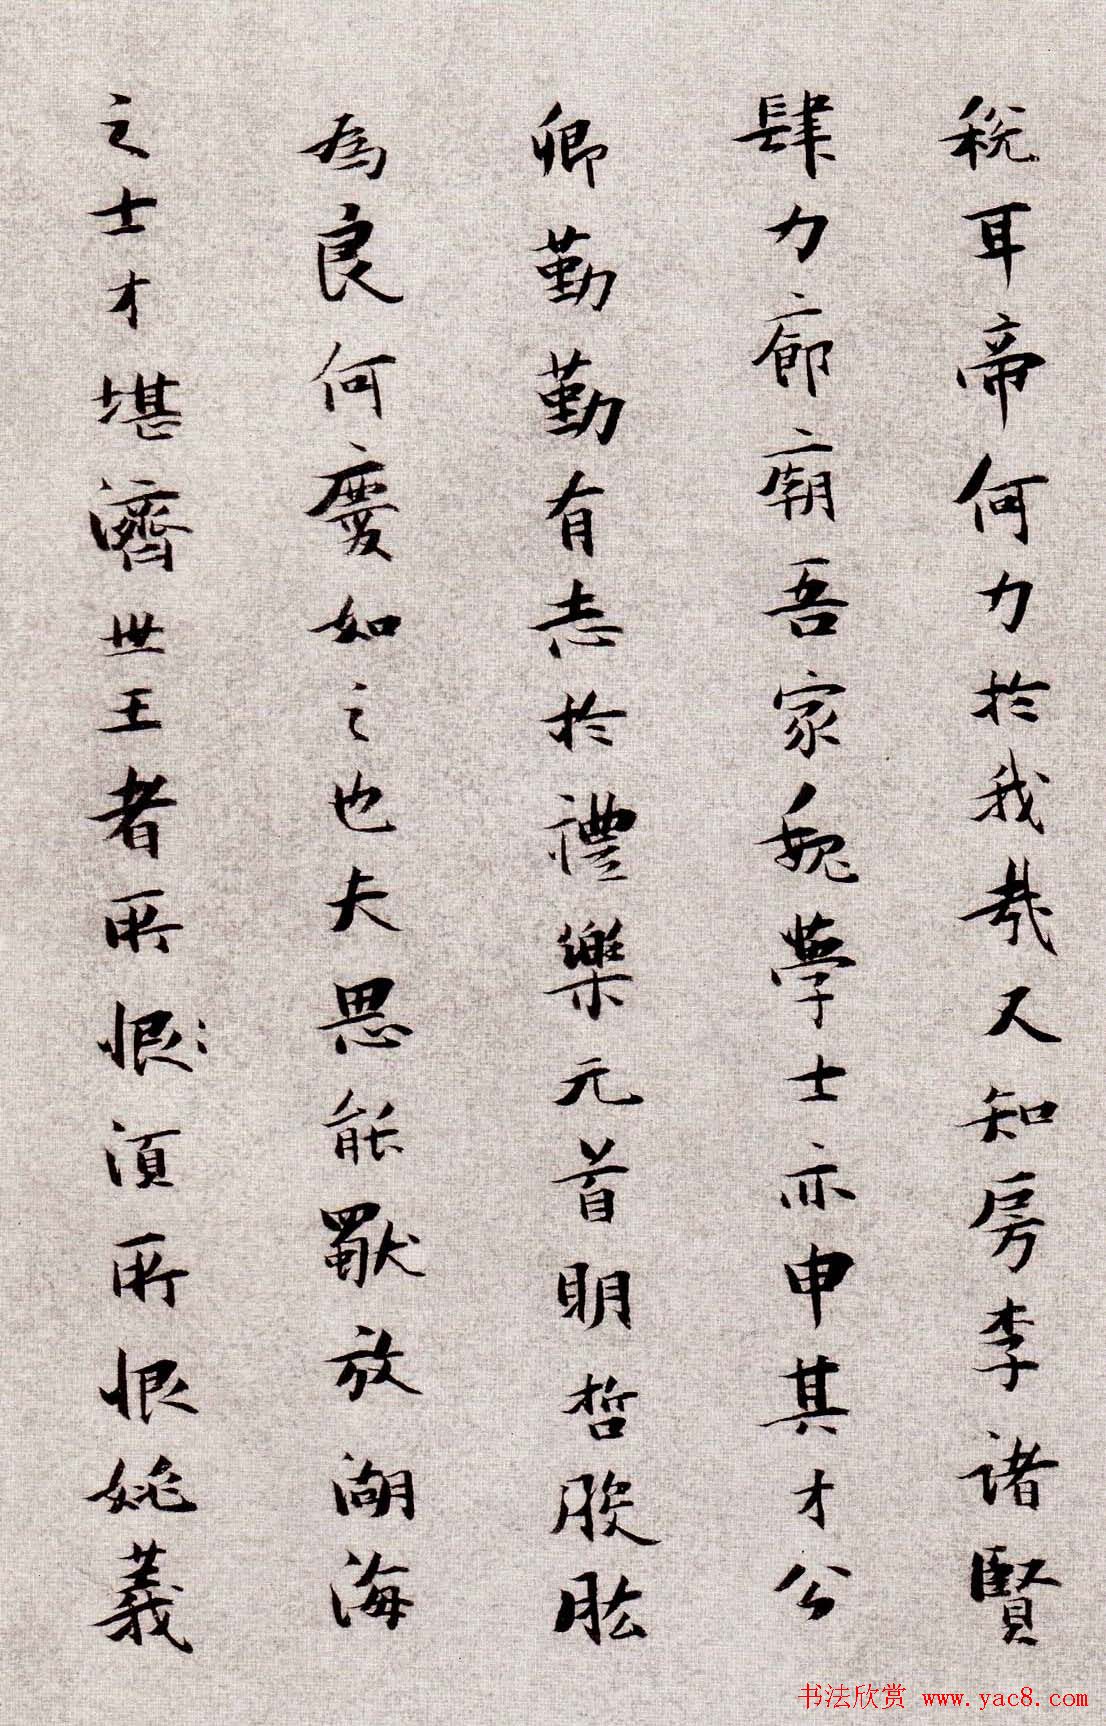 稅耳帝何力於我哉又知房李諸賢
肆力廊廟吾家魏學士亦申其才公
卿勤勤有志於禮樂元首明哲股肱
為良何慶如之也夫思能獻放湖海
之士才堪濟世王者所恨恨須所恨姚義
书法欣赏 www.yac8.com